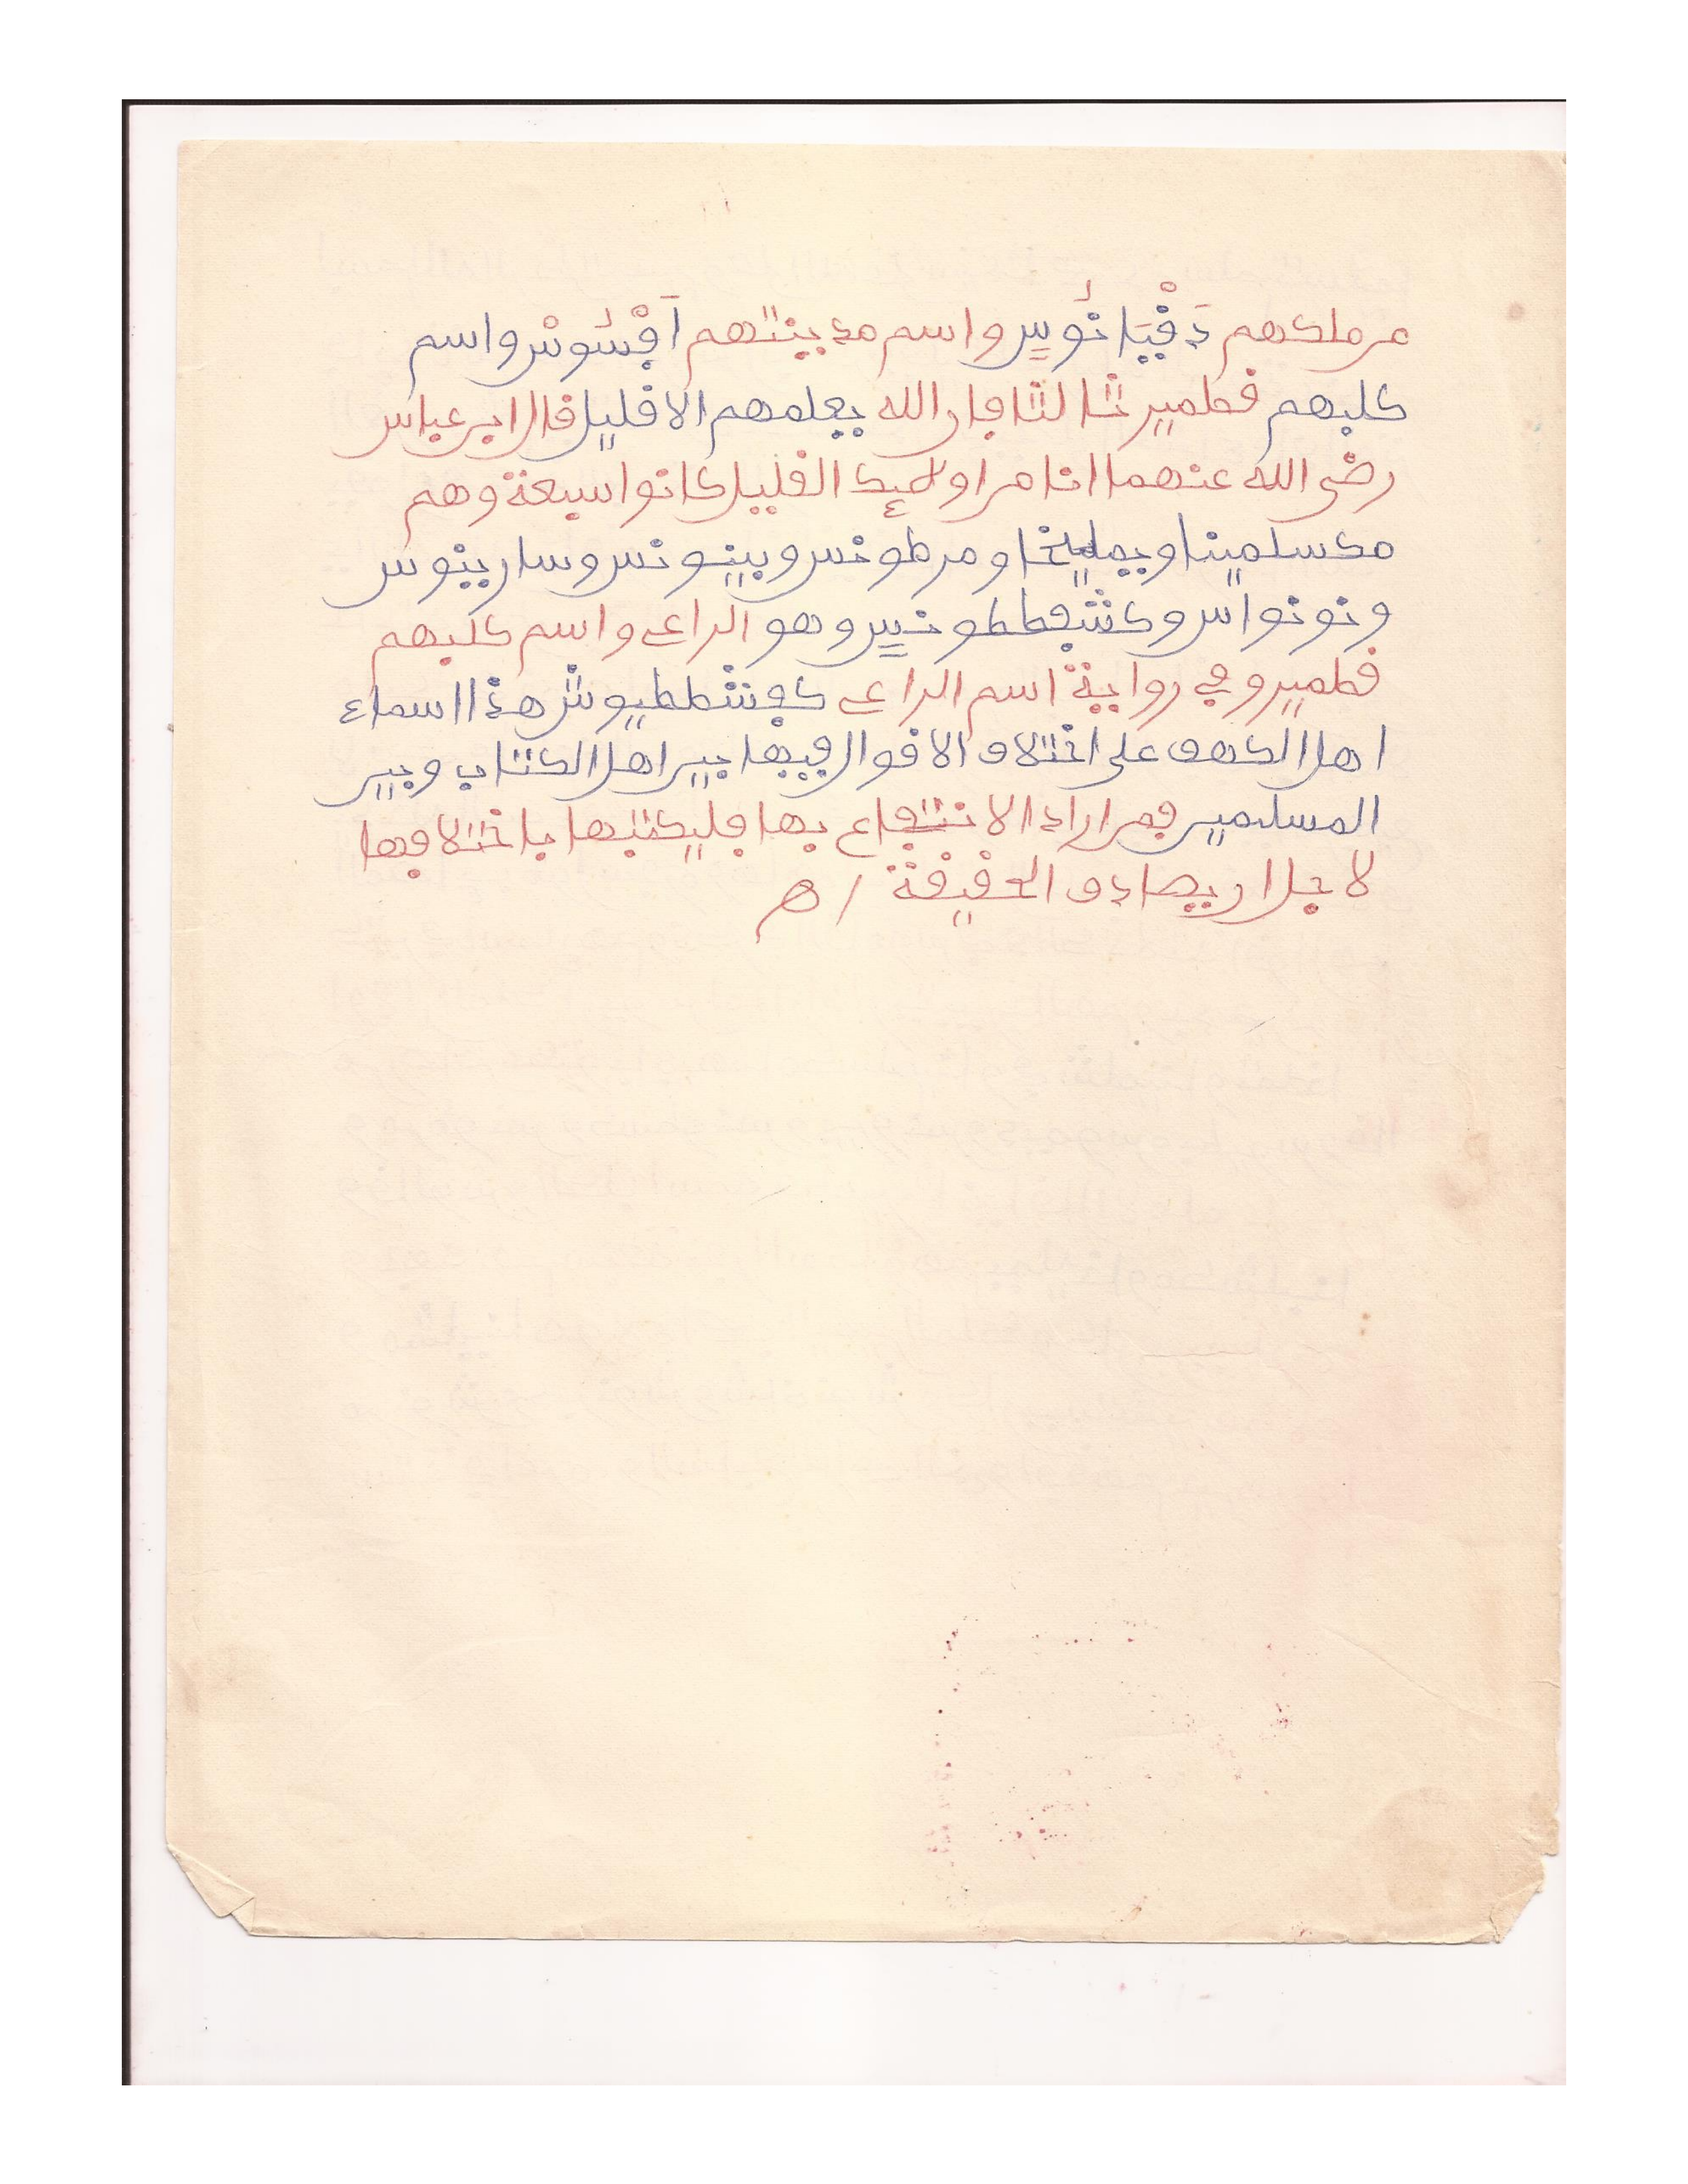 من ملكهم دَقْيَانُوس واسم مدينتهم اَفْسُوسْ واسم
كلبهم قطمير ثالثا فان الله يعلمهم الا قليل قال ابن عباس
رضى الله عنهما انا من اولئك القليل كانوا سبعة وهم
مكسلمينا ويمليخا ومرطونس وبينونس وسارينوس
ونونواس وكشفططونيس وهو الراعى واسم كلبهم
قطمير وفي رواية اسم الراعى كفشططيوش هذا اسماء
اهل الكهف على اختلاف الاقوال فيها بين اهل الكتاب وبين
المسلمين فمن اراد الانتفاع بها فليكتبها باختلافها
لاجل ان يصادف الحقيقة / هـ